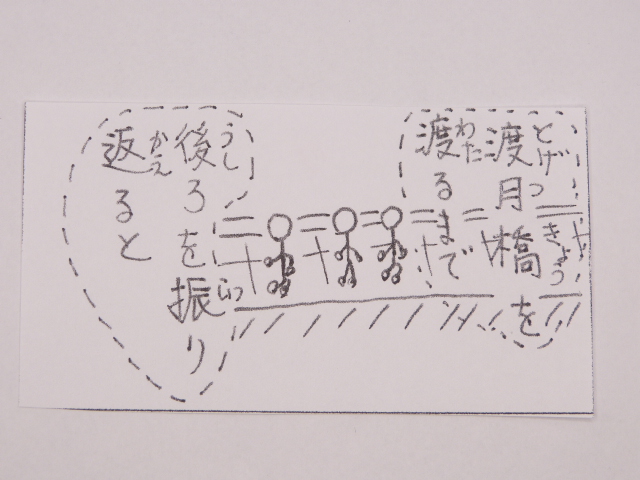 とげつきょう
渡月橋を
わた
渡るまで
うし
後ろを振り
かえ
返ると